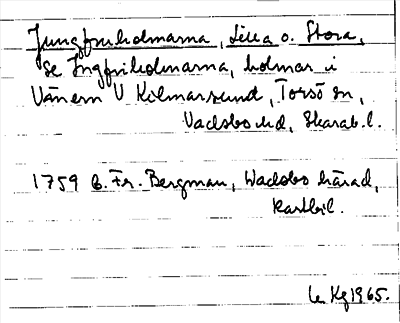 Jungfruholmarna, Lilla o. Stora,
Se Jngfruholmarna, holmar i
Vänern V Kolmarsund, Torsö sn,
Vadsbo hd, Skarab.l.
1759 C. Fr. Bergman, Wadsbo härad,
kartbil.
Kg 1965.